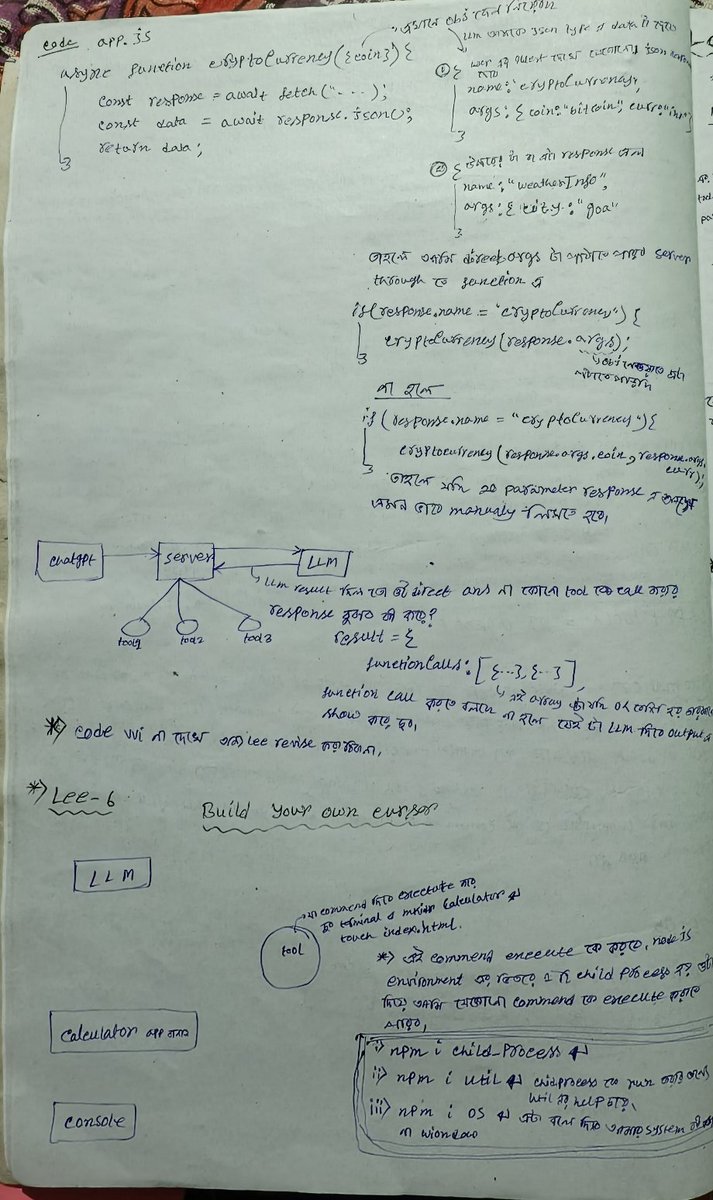 code app.js
async function cryptoCurrency({coin}) {
const response = await fetch("...");
const data = await response.json();
return data;
}
LLM আমাকে json type এ data টা দেবে
① {
name: "cryptoCurrency",
args: { coin: "bitcoin", curr: "inr" }
}
② { response
name: "weatherInfo",
args: { city: "goa"
}
তাহলে আমি direct args টা পাঠাতে পারব server
through তে function এ
if(response.name = "cryptoCurrency") {
cryptoCurrency(response.args);
}
না হলে
if (response.name = "cryptoCurrency") {
cryptocurrency(response.args.coin, response.args.
curr);
}
তাহলে যদি parameter response এ
manualy লিখতে হবে।
chatgpt
server
LLM
LLM result দিল তো ওটা direct ans না কোনো tool কে call করার
response বুঝব কী করে?
tool1
tool2
tool3
result = {
functionCalls: [{...}, {...}],
এই array টা যদি
function call করতে বলছে না হলে যেই টা LLM দিবে output এ
show করে দেব।
*) code vvi না দেখে lec revise করবি না।
*) Lec-6
Build Your own cursor
LLM
tool
commend দিবে execute করে
terminal এ mkdir calculator ↵
touch index.html.
*) এই commend execute কে করবে, node js
environment এর ভিতরে child process হয়
দিয়ে আমি যেকোনো command কে execute করাতে
পারব।
calculator app বানাব
i) npm i child_process ↵
ii) npm i util ↵ childprocess কে run করার জন্য
util এর help চায়।
iii) npm i os ↵ এটা বলে দিবে আমার system
না window
console